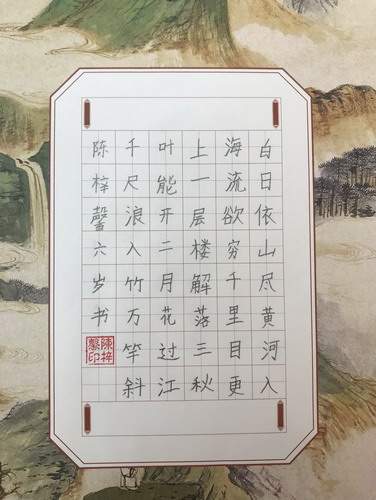 白日依山尽黄河入
海流欲穷千里目更
上一层楼解落三秋
叶能开二月花过江
千尺浪入竹万竿斜
陈梓馨六岁书
陳梓馨印